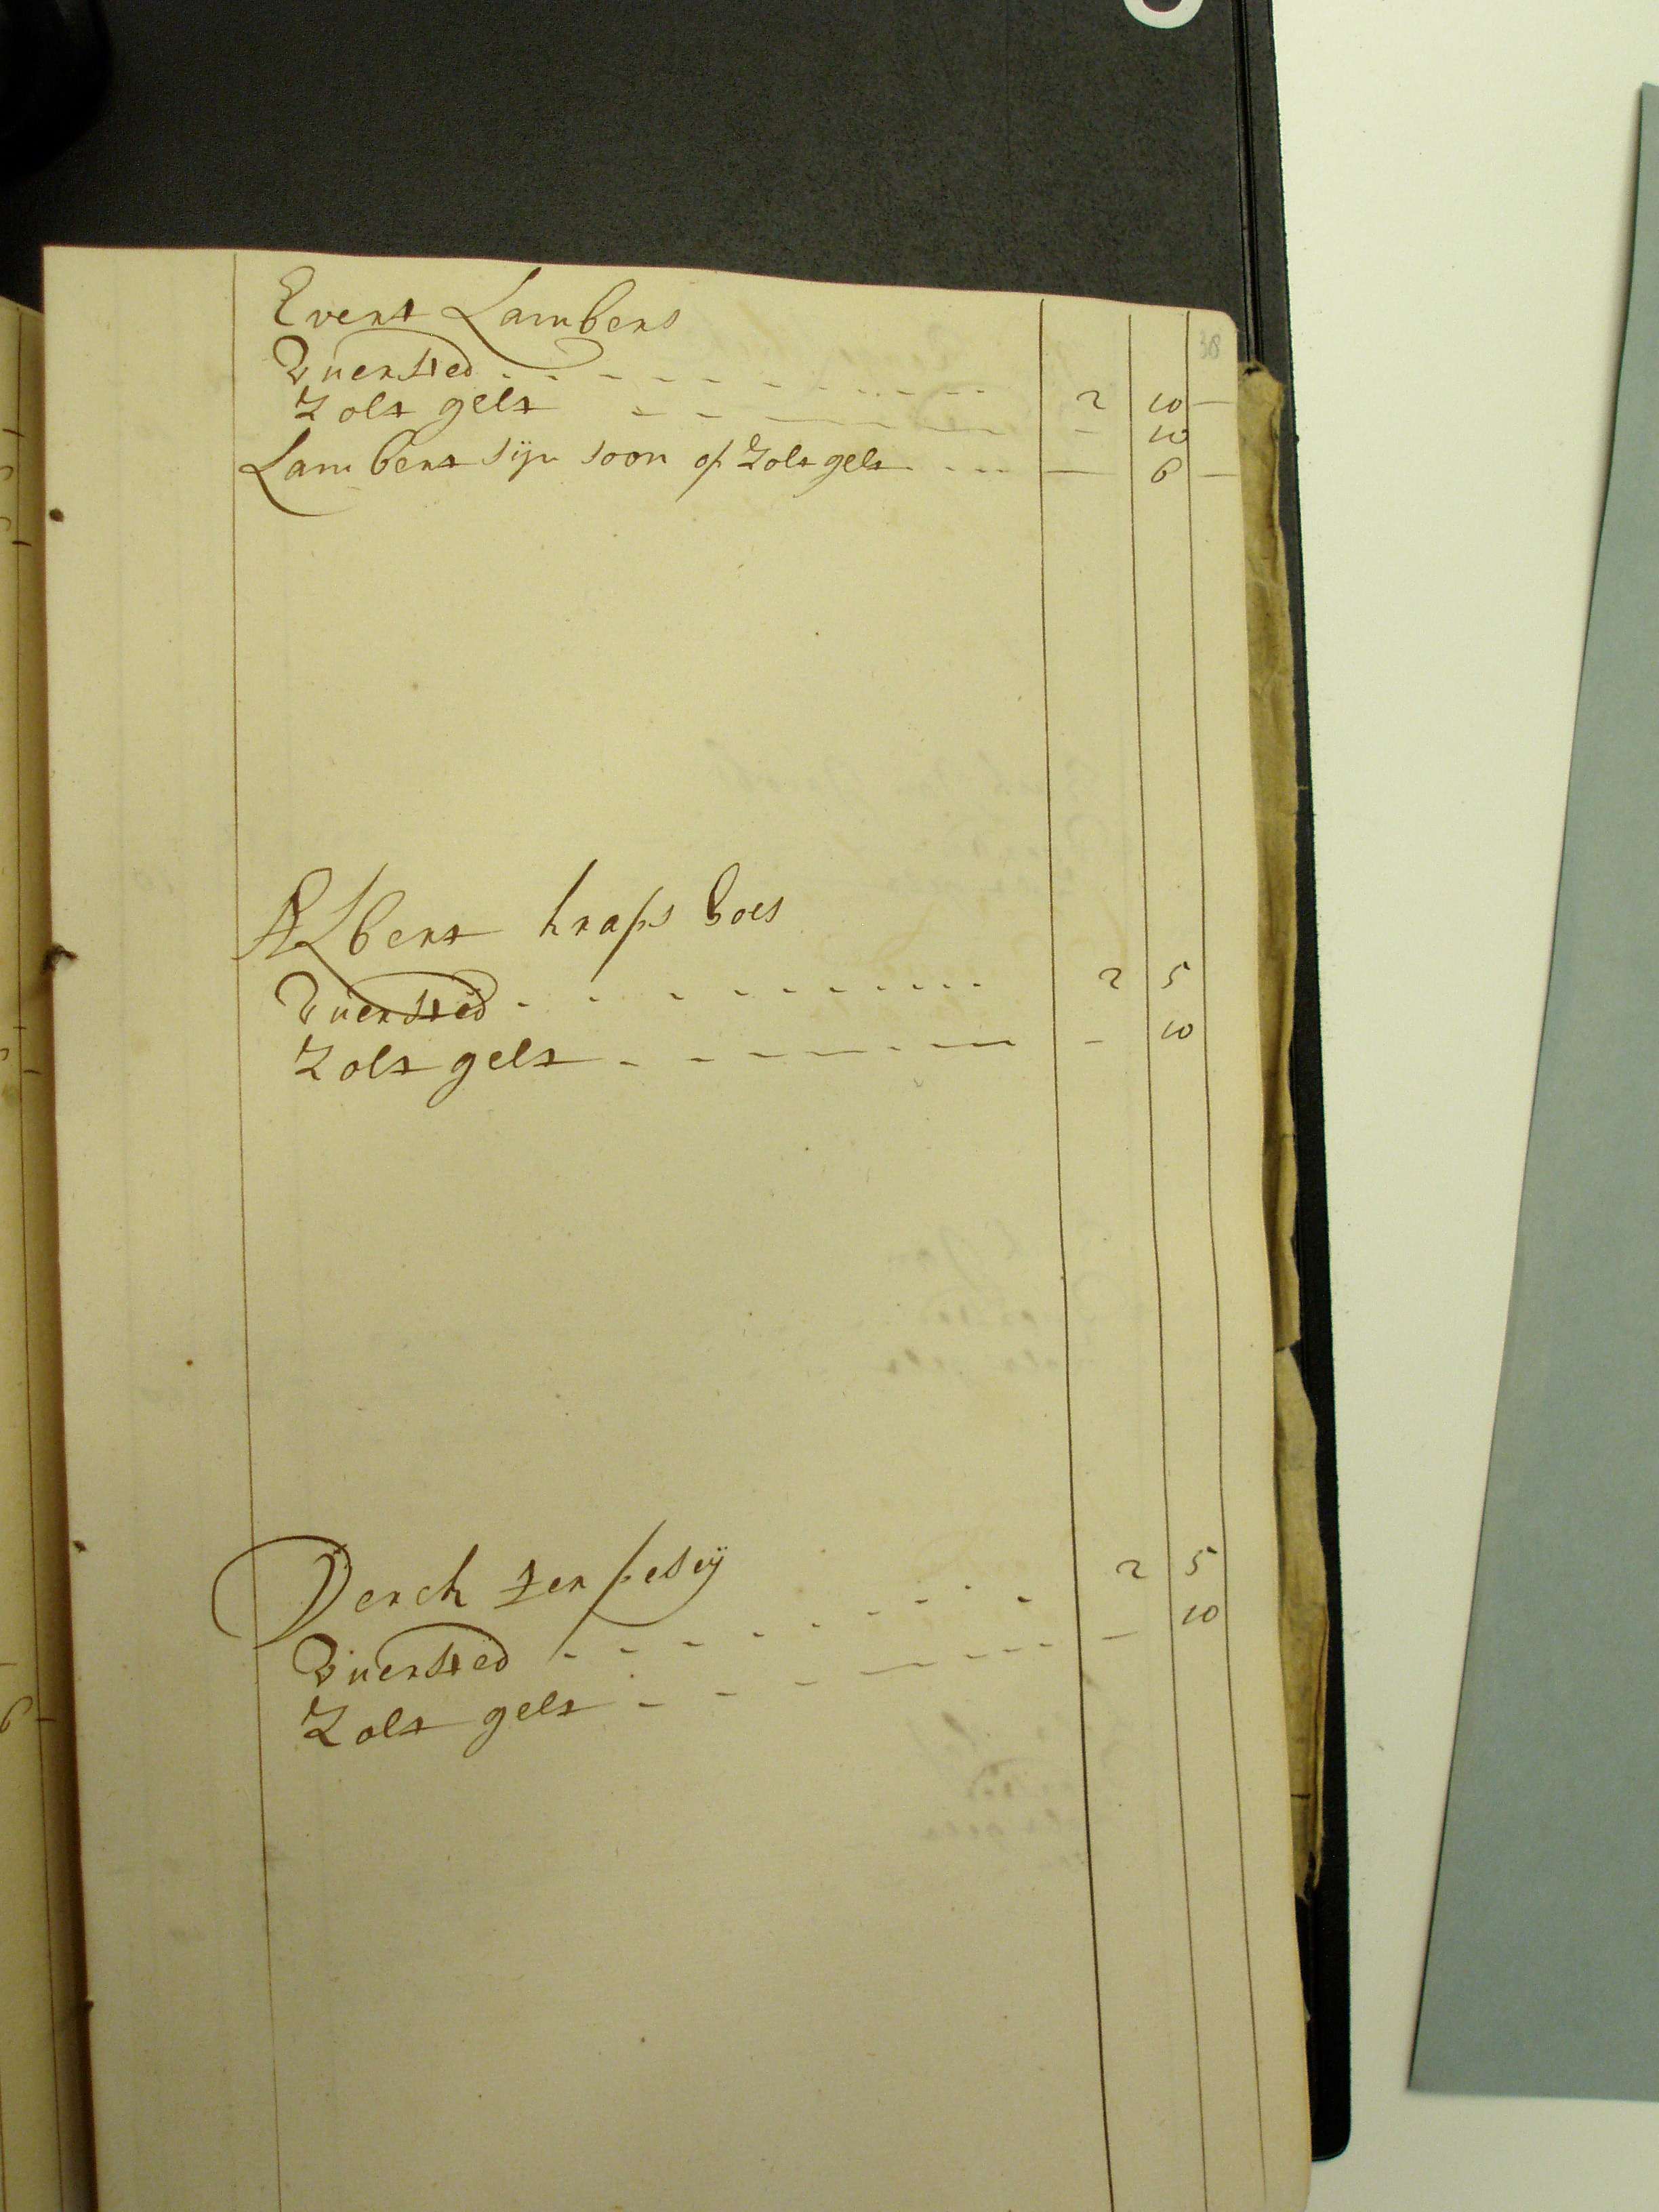 38
Evert Lambers
Vuersted 2 10 -
Zolt gelt - 10
Lambert sijn soon op Zolt gelt - 6 -
Albert hraps boes
Vuersted 2 5
Zolt gelt - 10
Derch ter pesey 2 5
Vuersted - 10
Zolt gelt